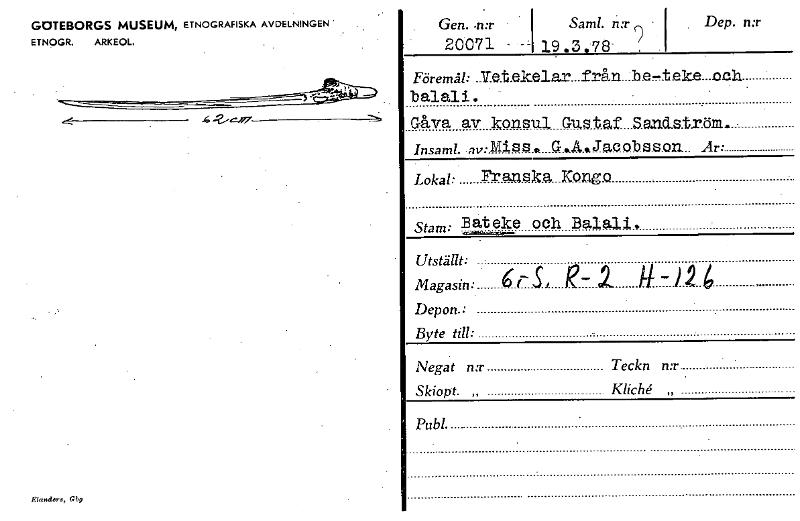 GÖTEBORGS MUSEUM, ETNOGRAFISKA AVDELNINGEN
ETNOGR. ARKEOL.
62 cm
Elanders, Gbg
Gen. n:r Saml. n:r ? Dep. n:r
20071 19.3.78
Föremål: Vetekelar från be-teke och
balali.
Gåva av konsul Gustaf Sandström.
Insaml. av: Miss. G.A.Jacobsson År:
Lokal: Franska Kongo
Stam: Bateke och Balali.
Utställt:
Magasin: 6:S. R-2 H-126
Depon.:
Byte till:
Negat n:r Teckn n:r
Skiopt. „ Kliché „
Publ.